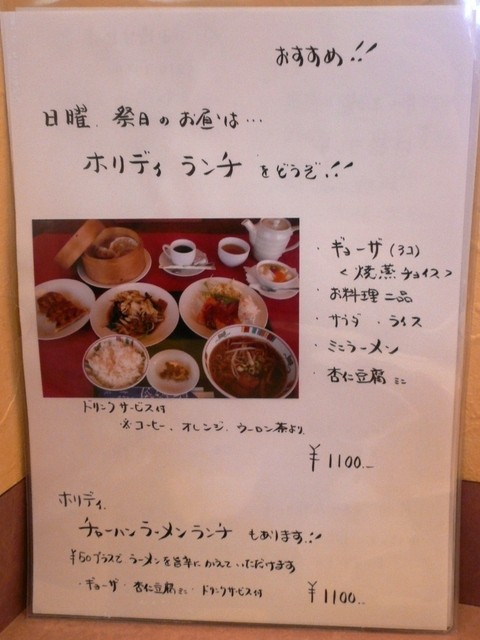 おすすめ!!
日曜、祭日のお昼は…
ホリディ ランチ をどうぞ!!
・ギョーザ(3コ)
<焼蒸チョイス>
・お料理二品
・サラダ・ライス
・ミニラーメン
・杏仁豆腐ミニ
ドリンクサービス付
※コーヒー、オレンジ、ウーロン茶より
¥1100.-
ホリディ
チャーハンラーメンランチ もあります!!
¥50プラスで ラーメンを旨辛にかえていただけます
・ギョーザ・杏仁豆腐ミニ・ドリンクサービス付 ¥1100.-